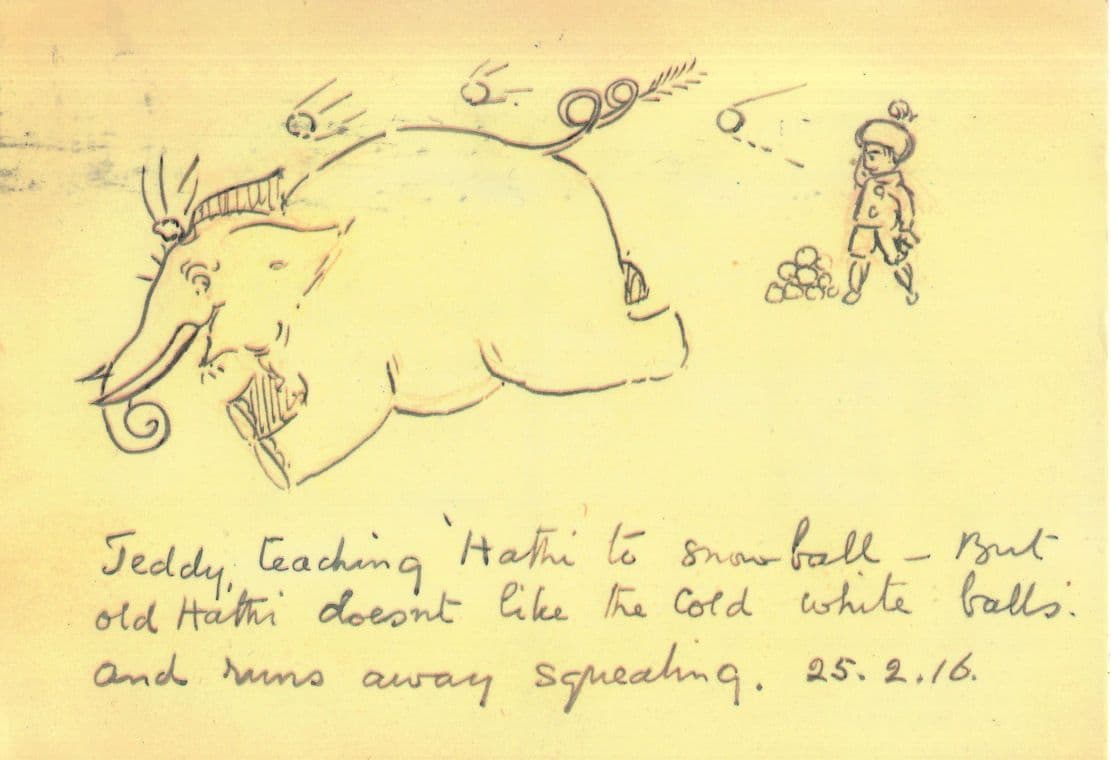 Teddy, teaching 'Hathi to snowball – But
old Hathi doesnt like the cold white balls.
and runs away squealing. 25.2.16.